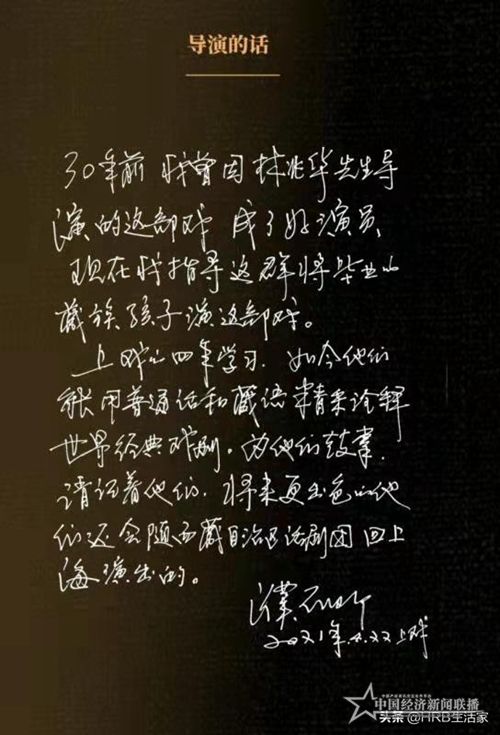 导演的话
30年前 我曾因林兆华先生导
演的这部戏 成了好演员
现在我指导这群将毕业的
藏族孩子演这部戏。
上戏的四年学习,如今他们
能用普通话和藏语精采诠释
世界经典戏剧。为他们鼓掌,
请记着他们,将来更出色的他
们还会随西藏自治区话剧团回上
海演出的。
濮存昕
2021年.4.22上戏
中国经济新闻联播
头条@HRB生活家